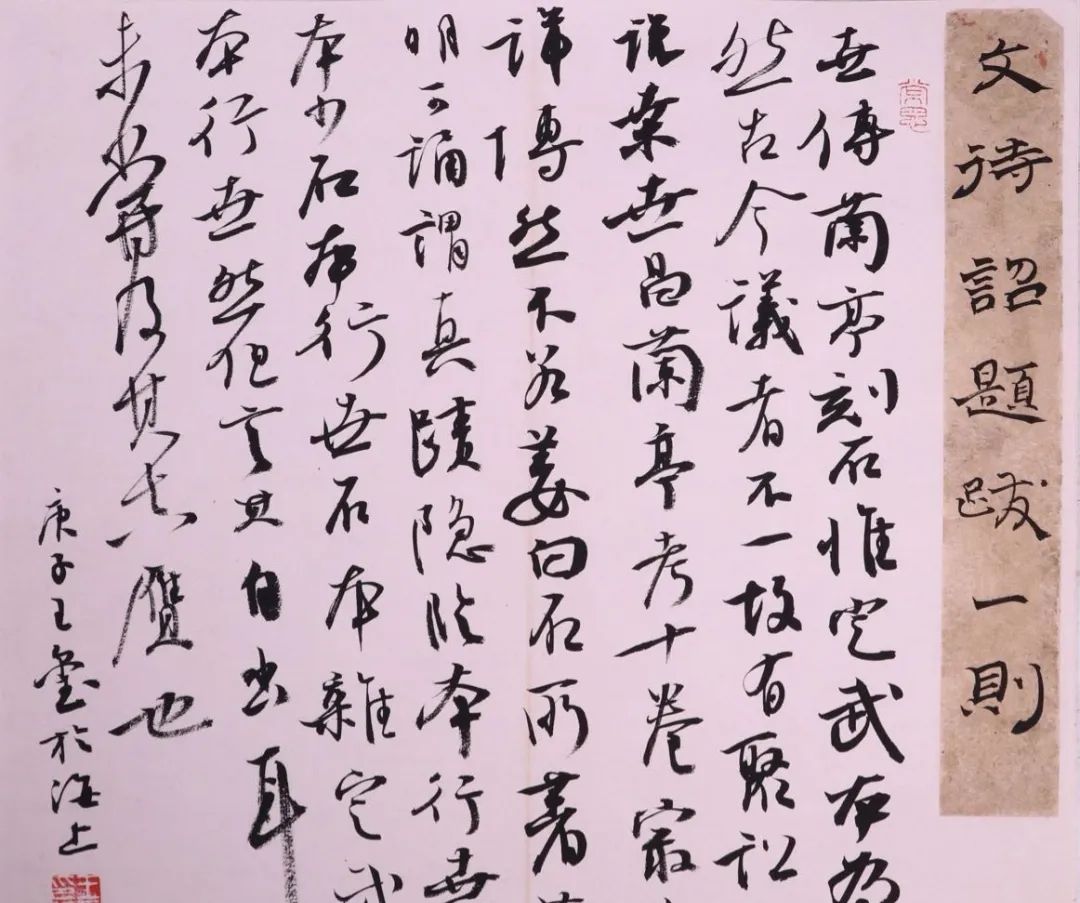 文待詔題跋一則
世傳蘭亭刻石惟定武本為
然古今議者不一故有聚訟
說桑世昌蘭亭考十卷最
詳博然不若姜白石所著
明可誦謂真蹟隐臨本行世
本少石本行世石本雜定武
本行世然但言其自出耳
未嘗及其真贋也
庚子王於海上